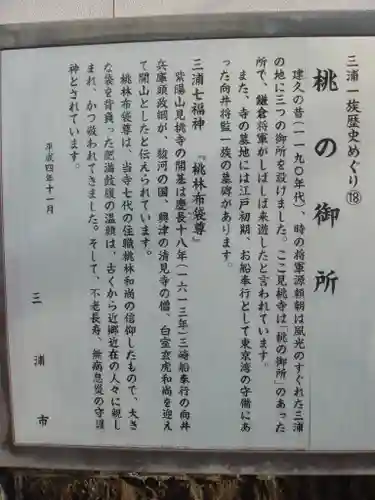 三浦一族歴史めぐり⑱
桃の御所
建久の昔(一一九〇年代)、時の将軍源頼朝は風光のすぐれた三浦
の地に三つの御所を設けました。ここ見桃寺は「桃の御所」のあった
所で、鎌倉将軍がしばしば来遊したと言われています。
また、寺の墓地には江戸初期、お船奉行として東京湾の守備にあ
った向井将監一族の墓碑があります。
三浦七福神 『桃林布袋尊』
紫陽山見桃寺の開基は慶長十八年(一六一三年)三崎船奉行の向井
兵庫頭政綱が、駿河の国、興津の清見寺の僧、白室玄虎和尚を迎え
て開山としたと伝えられています。
桃林布袋尊は、当寺七代の住職桃林和尚の信仰したもので、大き
な袋を背負った肥満鼓腹の温顔は、古くから近郷近在の人々に親し
まれ、かつ敬われてきました。そして、不老長寿、無病息災の守護
神とされています。
平成四年十一月
三浦市